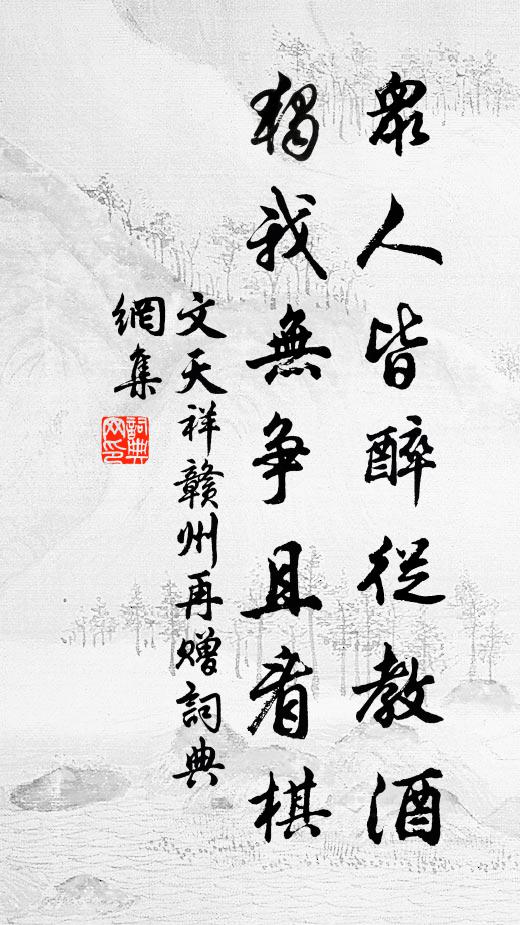 眾人皆醉從教酒
獨我無爭且看棋
文天祥贛州再贈詞典
網集
詞典
网印